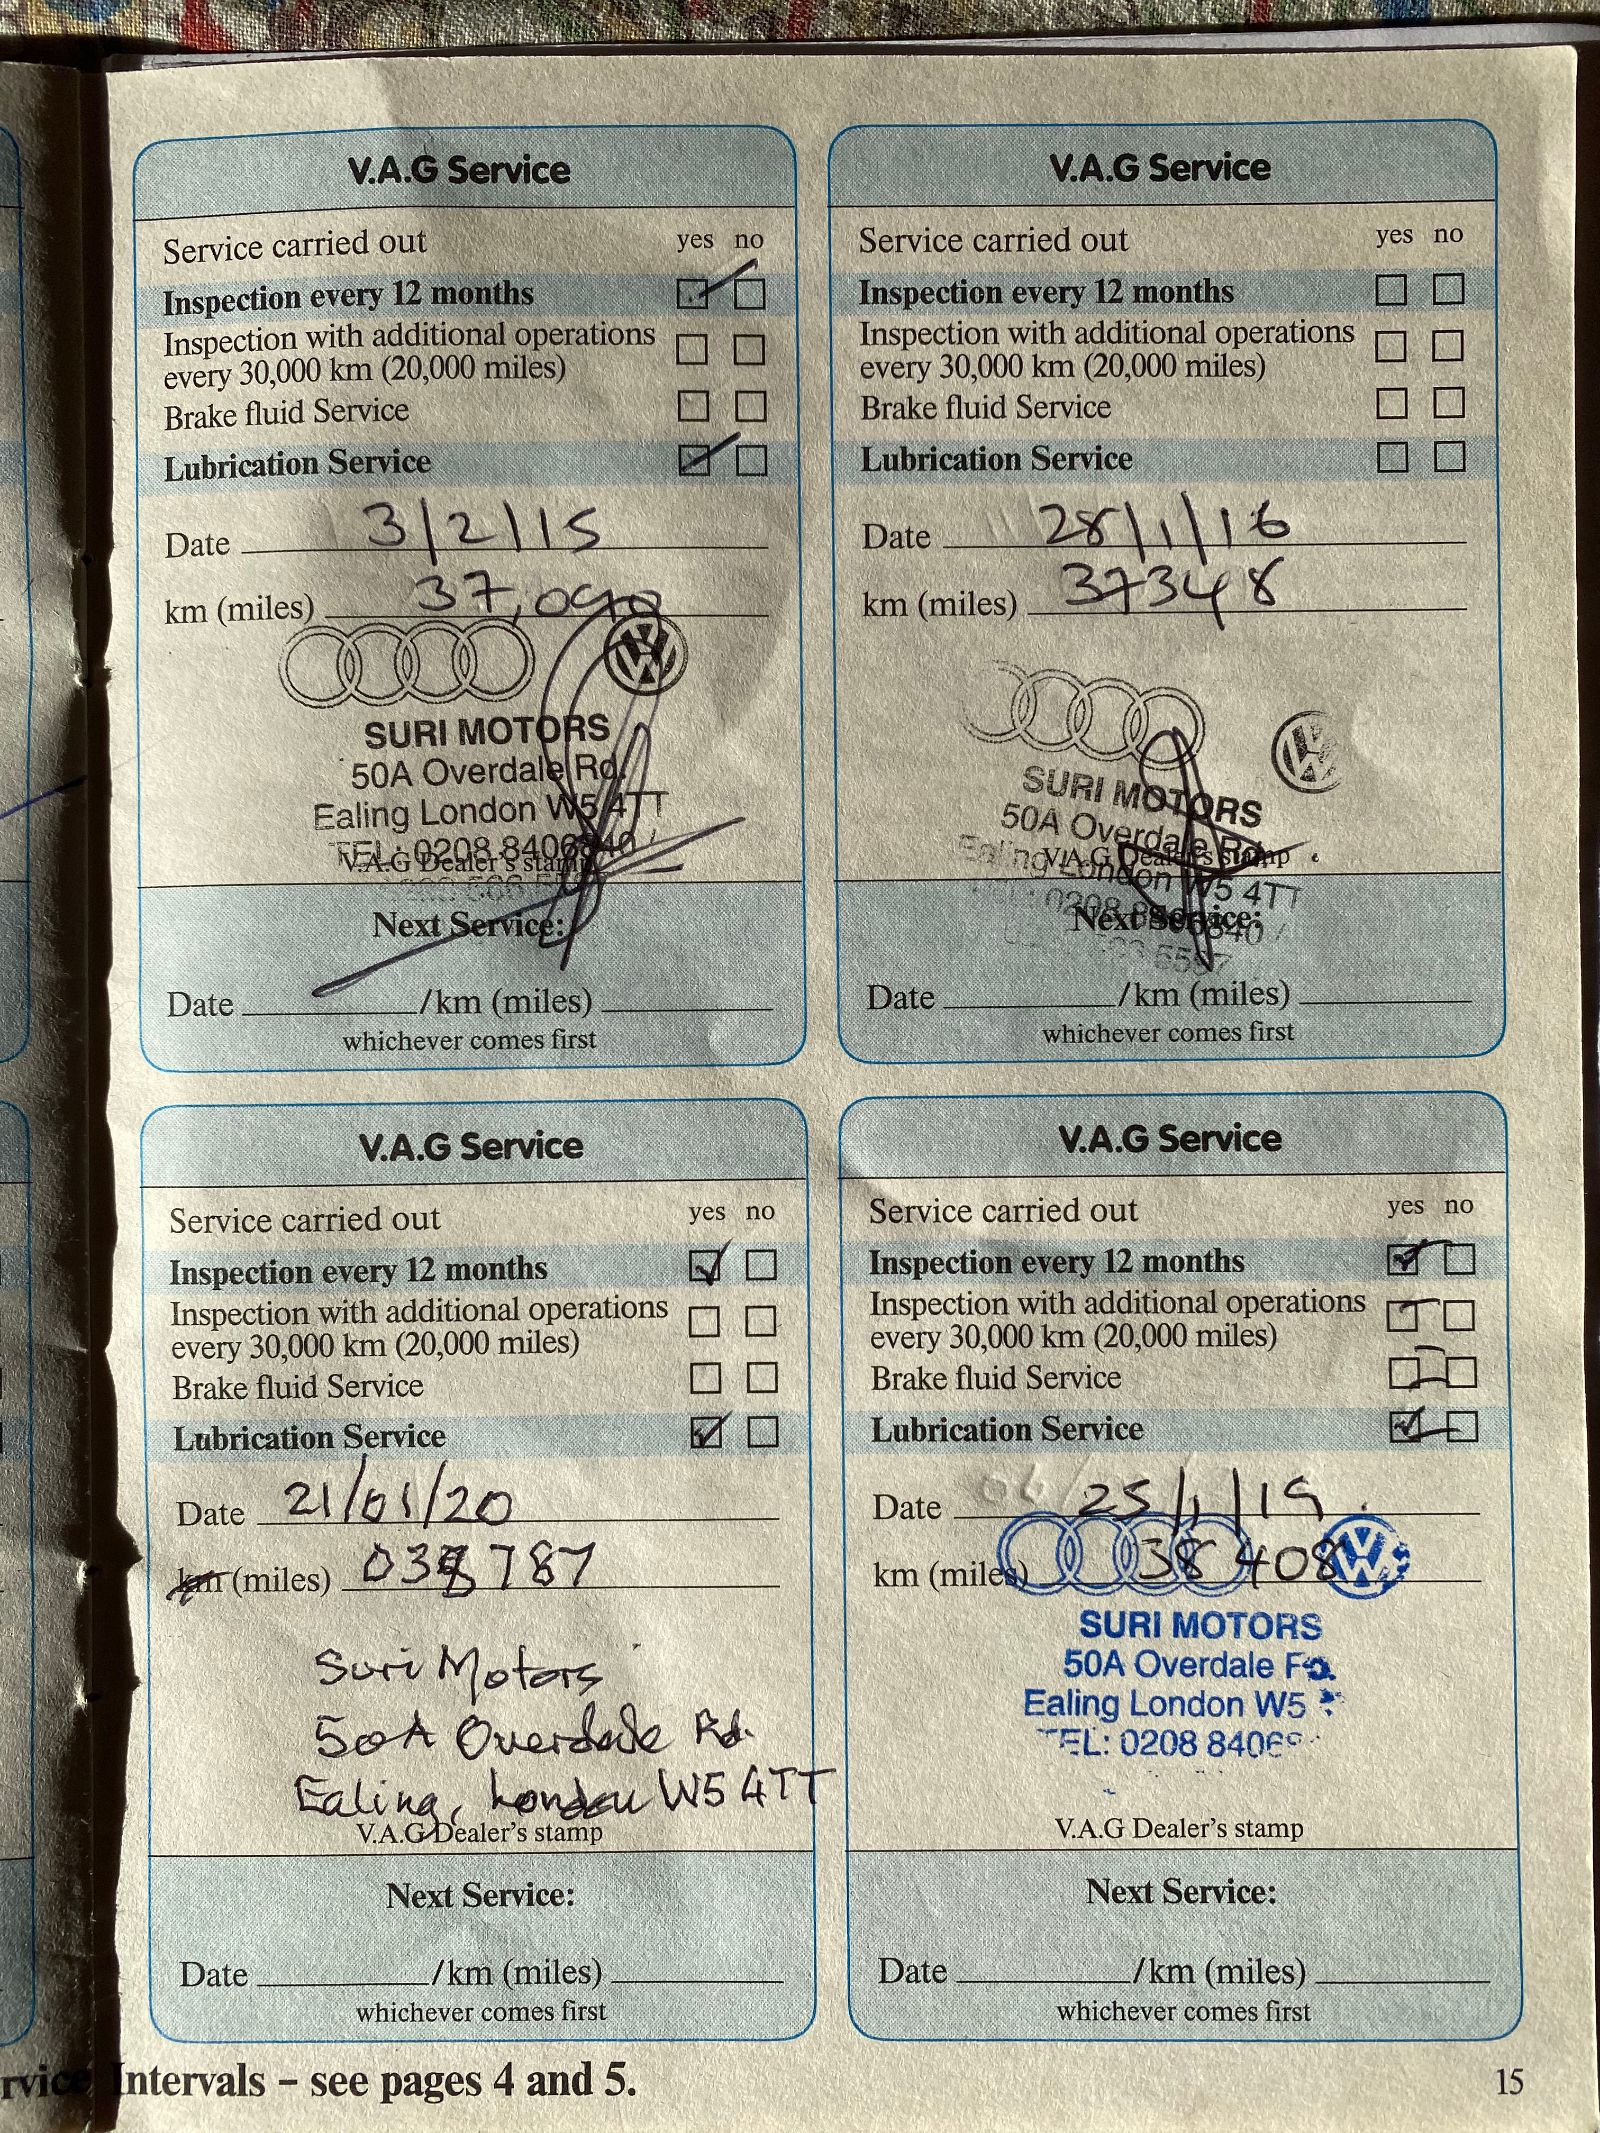 V.A.G Service
Service carried out yes no
Inspection every 12 months
Inspection with additional operations
every 30,000 km (20,000 miles)
Brake fluid Service
Lubrication Service
Date 3/2/15
km (miles) 37,090
SURI MOTORS
50A Overdale Rd.
Ealing London W5 4TT
TEL: 0208 8406840 /
V.A.G Dealer's stamp
Next Service:
Date /km (miles)
whichever comes first
V.A.G Service
Service carried out yes no
Inspection every 12 months
Inspection with additional operations
every 30,000 km (20,000 miles)
Brake fluid Service
Lubrication Service
Date 28/1/16
km (miles) 37348
SURI MOTORS
50A Overdale Rd.
Ealing London W5 4TT
V.A.G Dealer's stamp
Next Service:
Date /km (miles)
whichever comes first
V.A.G Service
Service carried out yes no
Inspection every 12 months
Inspection with additional operations
every 30,000 km (20,000 miles)
Brake fluid Service
Lubrication Service
Date 21/01/20
km (miles) 038787
Suri Motors
50A Overdale Rd.
Ealing, London W5 4TT
V.A.G Dealer's stamp
Next Service:
Date /km (miles)
whichever comes first
V.A.G Service
Service carried out yes no
Inspection every 12 months
Inspection with additional operations
every 30,000 km (20,000 miles)
Brake fluid Service
Lubrication Service
Date 25/1/19
km (miles) 38408
SURI MOTORS
50A Overdale
Ealing London W5
TEL: 0208 8406
V.A.G Dealer's stamp
Next Service:
Date /km (miles)
whichever comes first
rvice Intervals – see pages 4 and 5.
15